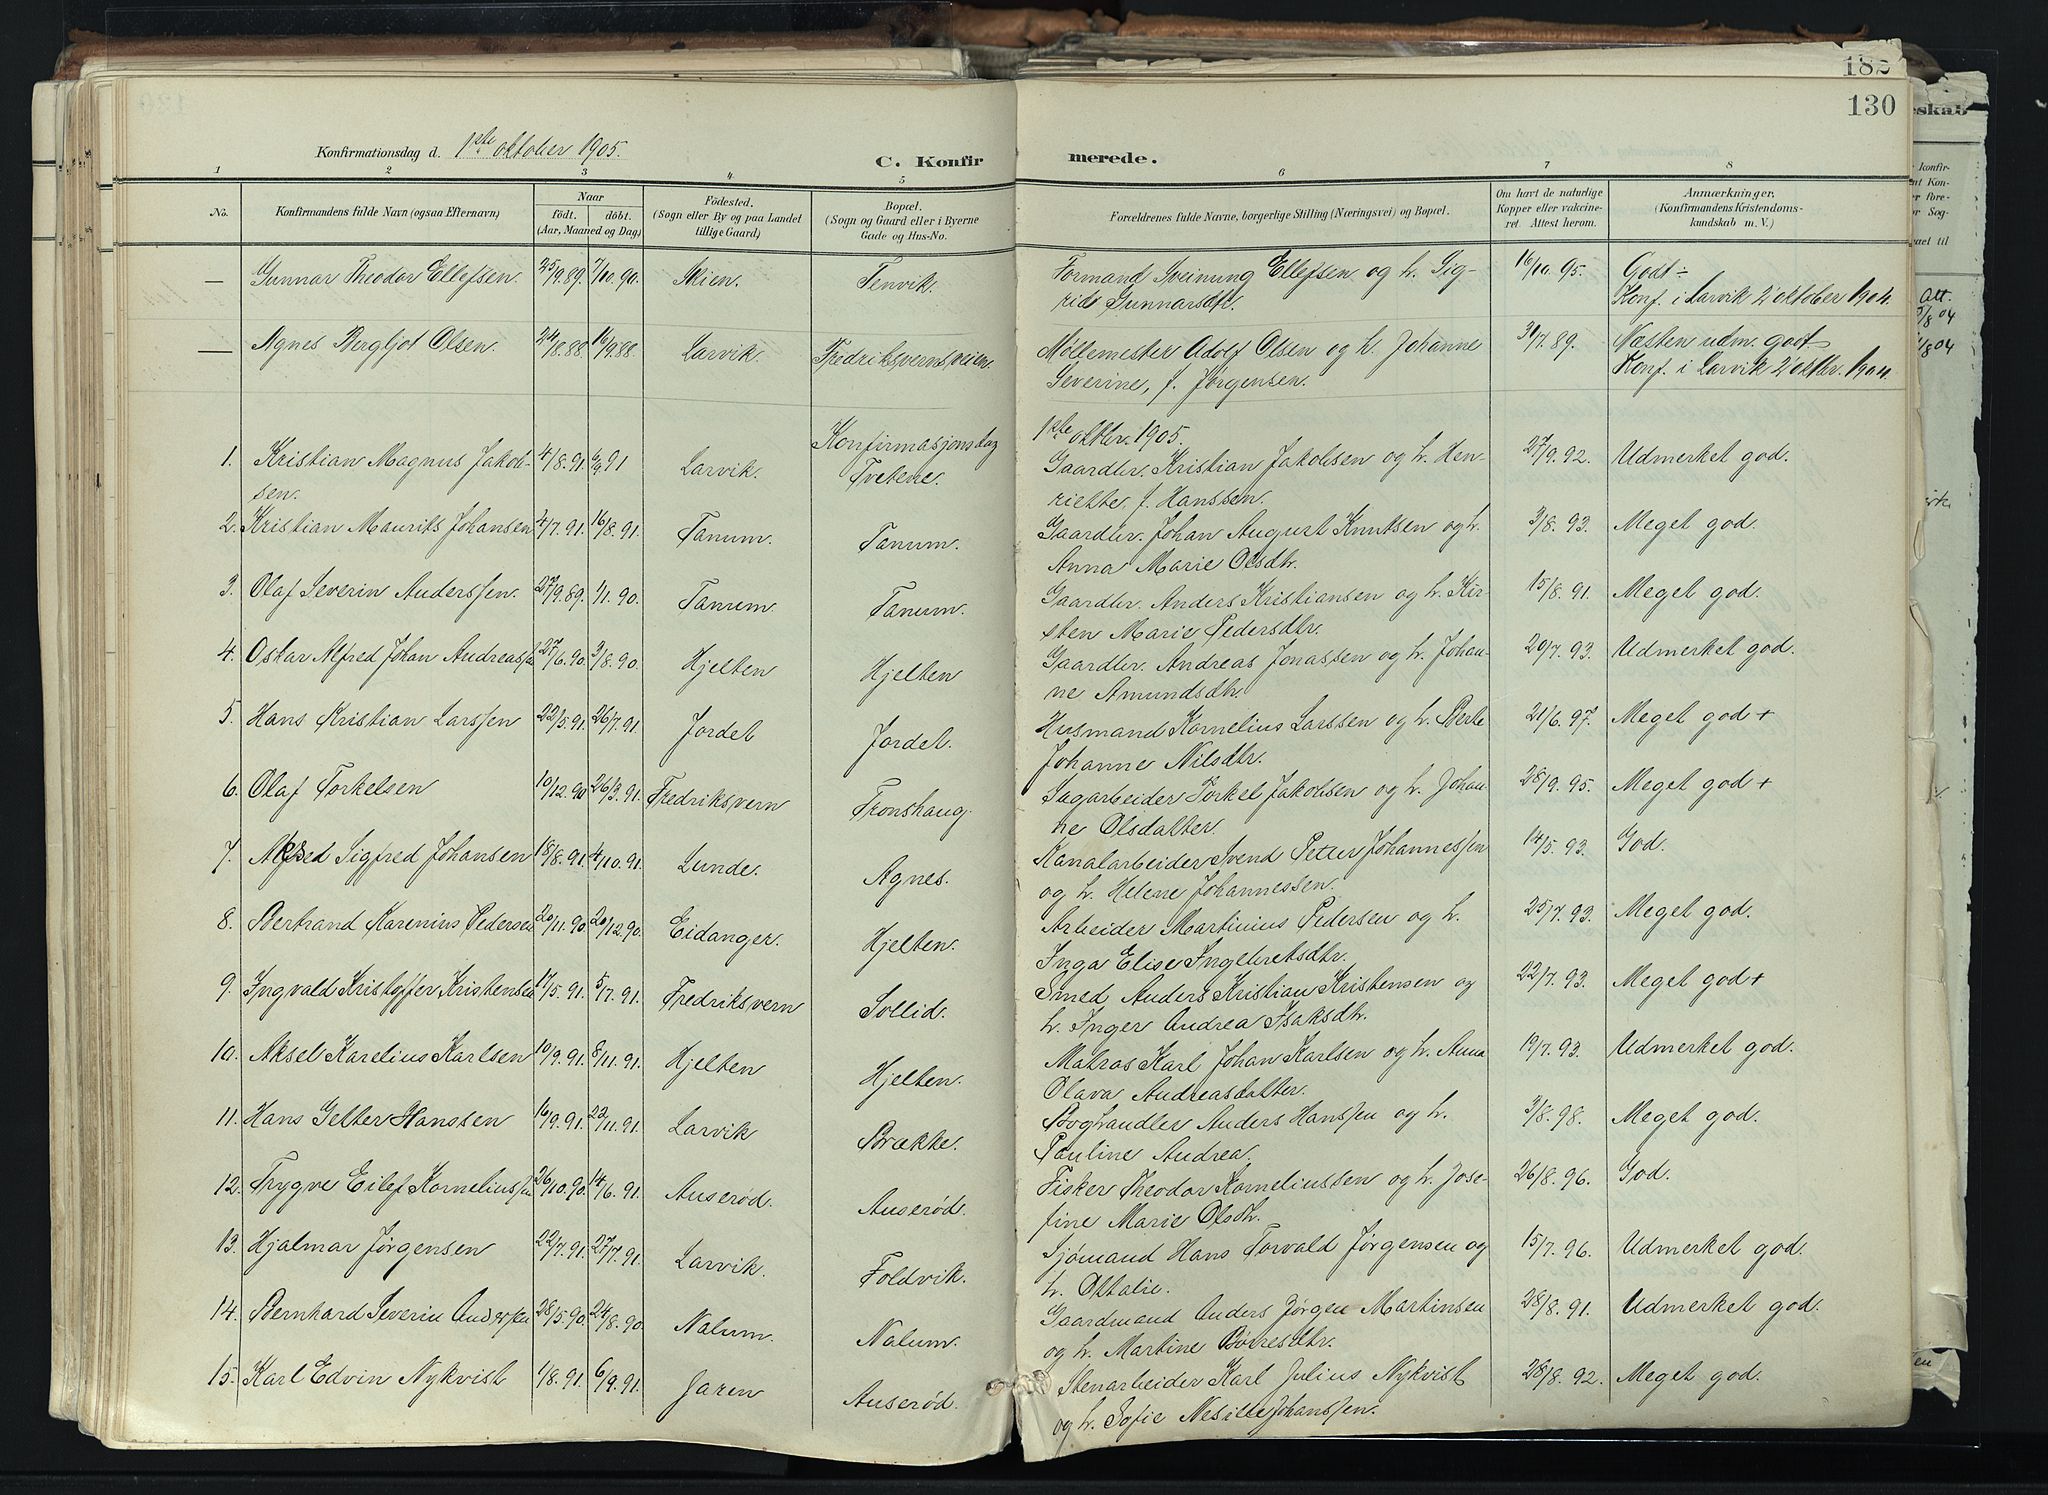 182
130
Konfirmationsdag d. 1ste oktober 1905.
C. Konfir merede.
1 2 3 4 5 6 7 8
No.
Konfirmandens fulde Navn (ogsaa Efternavn)
Naar
födt. döbt.
(Aar, Maaned og Dag)
Födested.
(Sogn eller By og paa Landet
tillige Gaard)
Bopæl.
(Sogn og Gaard eller i Byerne
Gade og Hus-No.
Forældrenes fulde Navne, borgerlige Stilling (Næringsvei) og Bopæl.
Om havt de naturlige
Kopper eller vakcine-
ret. Attest herom.
Anmærkninger.
(Konfirmandens Kristendoms-
kundskab m. V.)
— Gunnar Theodor Ellefsen. 25/9.89. 7/10.90. Skien. Tenvik. Formand Sveinung Ellefsen og h. Sig- 16/10.95. Godt ÷
rid Gunnarsdtr. Konf. i Larvik 2 oktober 1904.
— Agnes Bergljot Olsen. 24/8.88 16/9.88. Larvik. Fredriksvernsveien. Møllemester Adolf Olsen og h. Johanne 31/7.89. Næsten udm. godt
Severine, f. Jørgensen. Konf. i Larvik 2 oktbr. 1904.
Konfirmasjonsdag 1ste oktbr. 1905.
1. Kristian Magnus Jakob- 4/8.91. 6/9 91 Larvik. Tvetene. Gaardbr. Kristian Jakobsen og h. Hen- 27/9.92. Udmerket god.
sen. riette, f. Hanssen.
2. Kristian Maurits Johansen 4/7.91. 16/8.91. Tanum. Tanum. Gaardbr. Johan August Knutsen og h. 3/8.93. Meget god.
Anna Marie Olsdtr.
3. Olaf Severin Anderssen. 27/9.89. 1/1.90. Tanum Tanum. Gaardbr. Anders Kristiansen og h. Kir- 15/8.91. Meget god.
sten Marie Pedersdtr.
4. Oskar Alfred Johan Andreassen 27/6.90. 3/8.90. Hjelten Hjelten Gaardbr. Andreas Jonassen og h. Johan- 20/7.93. Udmerket god.
ne Amundsdtr.
5. Hans Kristian Larssen 22/5.91. 26/7.91. Jordet Jordet. Husmand Kornelius Larssen og h. Berte 21/6.97. Meget god +
Johanne Nilsdtr.
6. Olaf Torkelsen 10/12.90 26/3.91. Fredriksvern Tronshaug. Sagarbeider Torkel Jakobsen og h. Johan- 28/9.95. Meget god +
ne Olsdatter.
7. Alfred Sigfred Johansen 18/8.91. 4/10.91. Lunde. Agnes. Kanalarbeider Svend Petter Johannessen 14/5.93. God.
og h. Helene Johannessen.
8. Bertrand Karenius Pedersen 20/11.90. 20/12.90. Eidanger. Hjelten. Arbeider Martinius Pedersen og h. 25/7.93. Meget god.
Inga Elise Ingebretsdtr.
9. Ingvald Kristoffer Kristensen 17/5.91. 5/7.91. Fredriksvern Sollid. Smed Anders Kristian Kristensen og 22/7.93. Meget god +
h. Inger Andrea Isaksdtr.
10. Aksel Karelius Karlsen 10/9.91. 8/11.91. Hjelten Hjelten. Matros Karl Johan Karlsen og h. Anna 19/7.93. Udmerket god.
Olava Andreasdatter.
11. Hans Getter Hanssen 16/9.91. 22/11.91. Larvik Brække. Boghandler Anders Hanssen og h. 3/8.98. Meget god.
Pauline Andrea.
12. Trygve Eilef Korneliussen 26/10.90. 14/6.91. Auserød. Auserød. Fisker Theodor Korneliussen og h. Jose- 26/8.96. God.
fine Marie Olsdtr.
13. Hjalmar Jørgensen 22/7.91. 27/7.91. Larvik. Foldvik. Sjømand Hans Torvald Jørgensen og 15/7.96. Udmerket god.
h. Ottalie.
14. Bernhard Severin Anderssen 28/5.90. 24/8.90. Nalum. Nalum. Gaardmand Anders Jørgen Martinsen 28/8.91. Udmerket god.
og h. Martine Børresdtr.
15. Karl Edvin Nykvist 1/8.91. 6/9.91. Jaren Auserød. Stenarbeider Karl Julius Nykvist 28/8.92. Meget god.
og h. Sofie Johanssen.